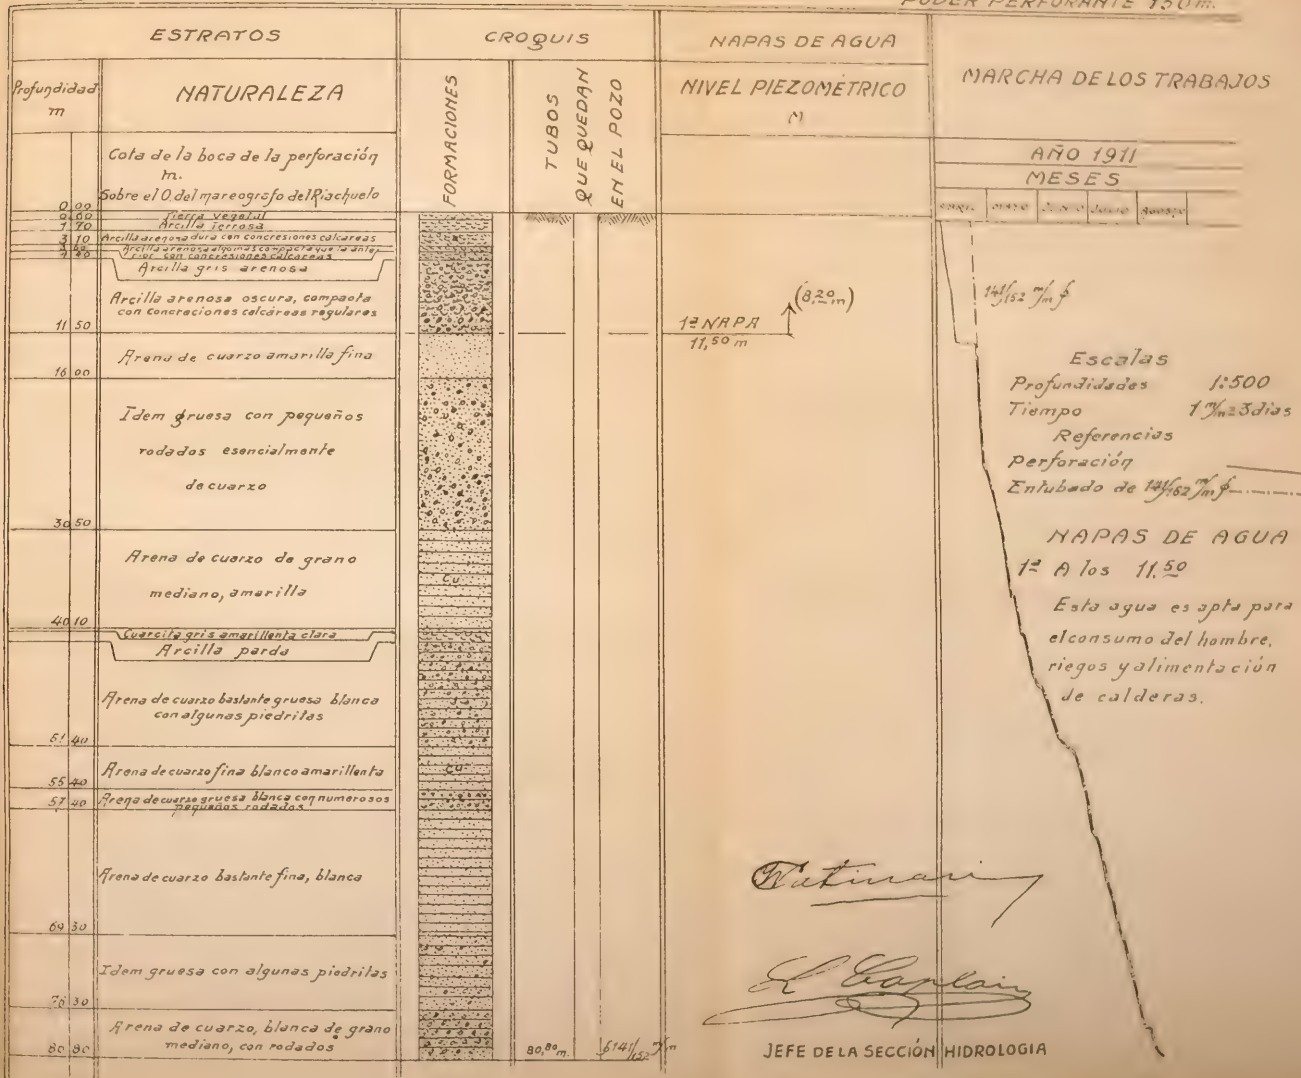 PODER PERFORANTE 150 m.
ESTRATOS
CROQUIS
NAPAS DE AGUA
MARCHA DE LOS TRABAJOS
Profundidad
m
NATURALEZA
FORMACIONES
TUBOS
QUE QUEDAN
EN EL POZO
NIVEL PIEZOMÉTRICO
M
AÑO 1911
MESES
ABRIL MAYO JUNIO JULIO AGOSTO
Cota de la boca de la perforación
m.
Sobre el 0. del mareografo del Riachuelo
0 00
Tierra vegetal
0 60
Arcilla terrosa
1 70
Arcilla arenosa dura con concresiones calcareas
3 10
Arcilla arenosa algo mas compacta que la ante
rior con concresiones calcareas
Arcilla gris arenosa
Arcilla arenosa oscura, compacta
con concreciones calcareas regulares
11 50
1ª NAPA
11,50 m
(8,20 m)
141/152 m/m ϕ
Arena de cuarzo amarilla fina
16 00
Idem gruesa con pequeños
rodados esencialmente
de cuarzo
30 50
Arena de cuarzo de grano
mediano, amarilla
Cu
40 10
Cuarcita gris amarillenta clara
Arcilla parda
Arena de cuarzo bastante gruesa blanca
con algunas piedritas
51 40
Arena de cuarzo fina blanco amarillenta
Cu
55 40
Arena de cuarzo gruesa blanca con numerosos
pequeños rodados
57 40
Arena de cuarzo bastante fina, blanca
69 30
Idem gruesa con algunas piedritas
76 30
Arena de cuarzo, blanca de grano
mediano, con rodados
80 80
80,80 m.
ϕ 141/152 m/m
Escalas
Profundidades 1:500
Tiempo 1 m/m = 3 dias
Referencias
Perforación
Entubado de 141/152 m/m ϕ
NAPAS DE AGUA
1ª A los 11.50
Esta agua es apta para
el consumo del hombre,
riegos y alimentación
de calderas.
JEFE DE LA SECCIÓN HIDROLOGIA